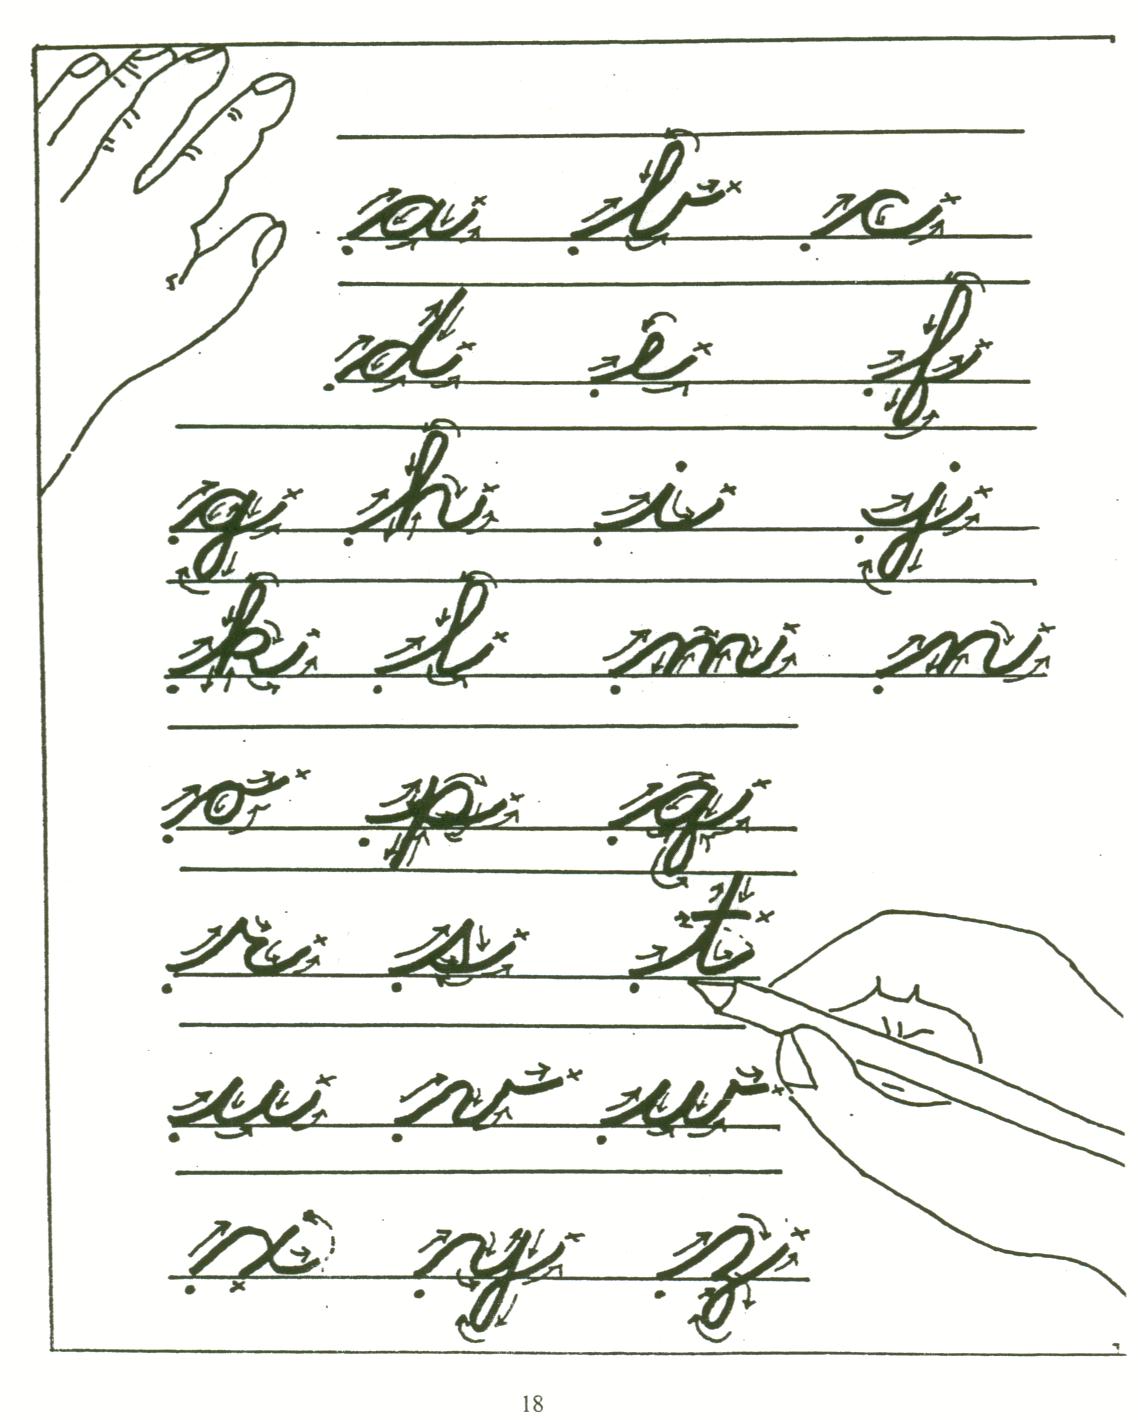 a b c
d e f
g h i j
k l m n
o p q
r s t
u v w
x y z
18